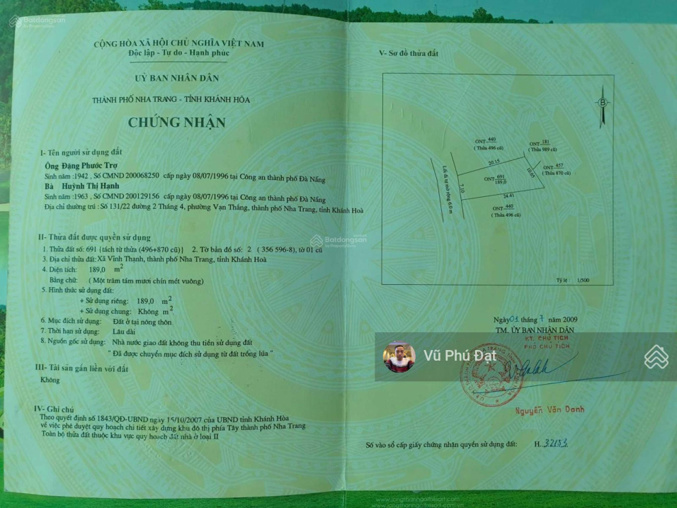 CỘNG HÒA XÃ HỘI CHỦ NGHĨA VIỆT NAM
Độc lập - Tự do - Hạnh phúc
UỶ BAN NHÂN DÂN
THÀNH PHỐ NHA TRANG - TỈNH KHÁNH HÒA
CHỨNG NHẬN
I- Tên người sử dụng đất
Ông Đặng Phước Trợ
Sinh năm :1942 , Số CMND 200068250 cấp ngày 08/07/1996 tại Công an thành phố Đà Nẵng
Bà Huỳnh Thị Hạnh
Sinh năm :1963 , Số CMND 200129156 cấp ngày 08/07/1996 tại Công an thành phố Đà Nẵng
Địa chỉ thường trú : Số 131/22 đường 2 Tháng 4, phường Vạn Thắng, thành phố Nha Trang, tỉnh Khánh Hoà
II- Thửa đất được quyền sử dụng
1. Thửa đất số: 691 (tách từ thửa (496+870 cũ)) 2. Tờ bản đồ số: 2 ( 356 596-8), tờ 01 cũ
3. Địa chỉ thửa đất: Xã Vĩnh Thạnh, thành phố Nha Trang, tỉnh Khánh Hoà
4. Diện tích: 189,0 m2
Bằng chữ: (Một trăm tám mươi chín mét vuông)
5. Hình thức sử dụng đất:
+ Sử dụng riêng: 189,0 m2
+ Sử dụng chung: Không m2
6. Mục đích sử dụng: Đất ở tại nông thôn
7. Thời hạn sử dụng: Lâu dài
8. Nguồn gốc sử dụng: Nhà nước giao đất không thu tiền sử dụng đất
" Đã được chuyển mục đích sử dụng từ đất trồng lúa"
III- Tài sản gắn liền với đất
Không
IV- Ghi chú
Theo quyết định số 1843/QĐ-UBND ngày 15/10/2007 của UBND tỉnh Khánh Hòa
về việc phê duyệt quy hoạch chi tiết xây dựng khu đô thị phía Tây thành phố Nha Trang
Toàn bộ thửa đất thuộc khu vực quy hoạch đất nhà ở loại II
V- Sơ đồ thửa đất
B
ONT 440
( Thửa 496 cũ)
ONT 691
189,0
ONT 440
( Thửa 496 cũ)
Tỷ lệ 1/500
Ngày 01 tháng 7 năm 2009
TM. ỦY BAN NHÂN DÂN
KT. CHỦ TỊCH
PHÓ CHỦ TỊCH
Vũ Phú Đạt
Nguyễn Văn Danh
Số vào sổ cấp giấy chứng nhận quyền sử dụng đất: H.
Batdongsan